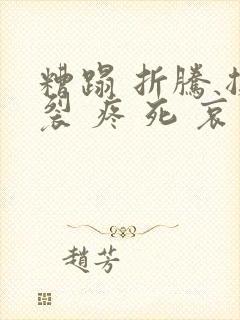 糟蹋 折騰
裂 疼 死 哀
趙芳